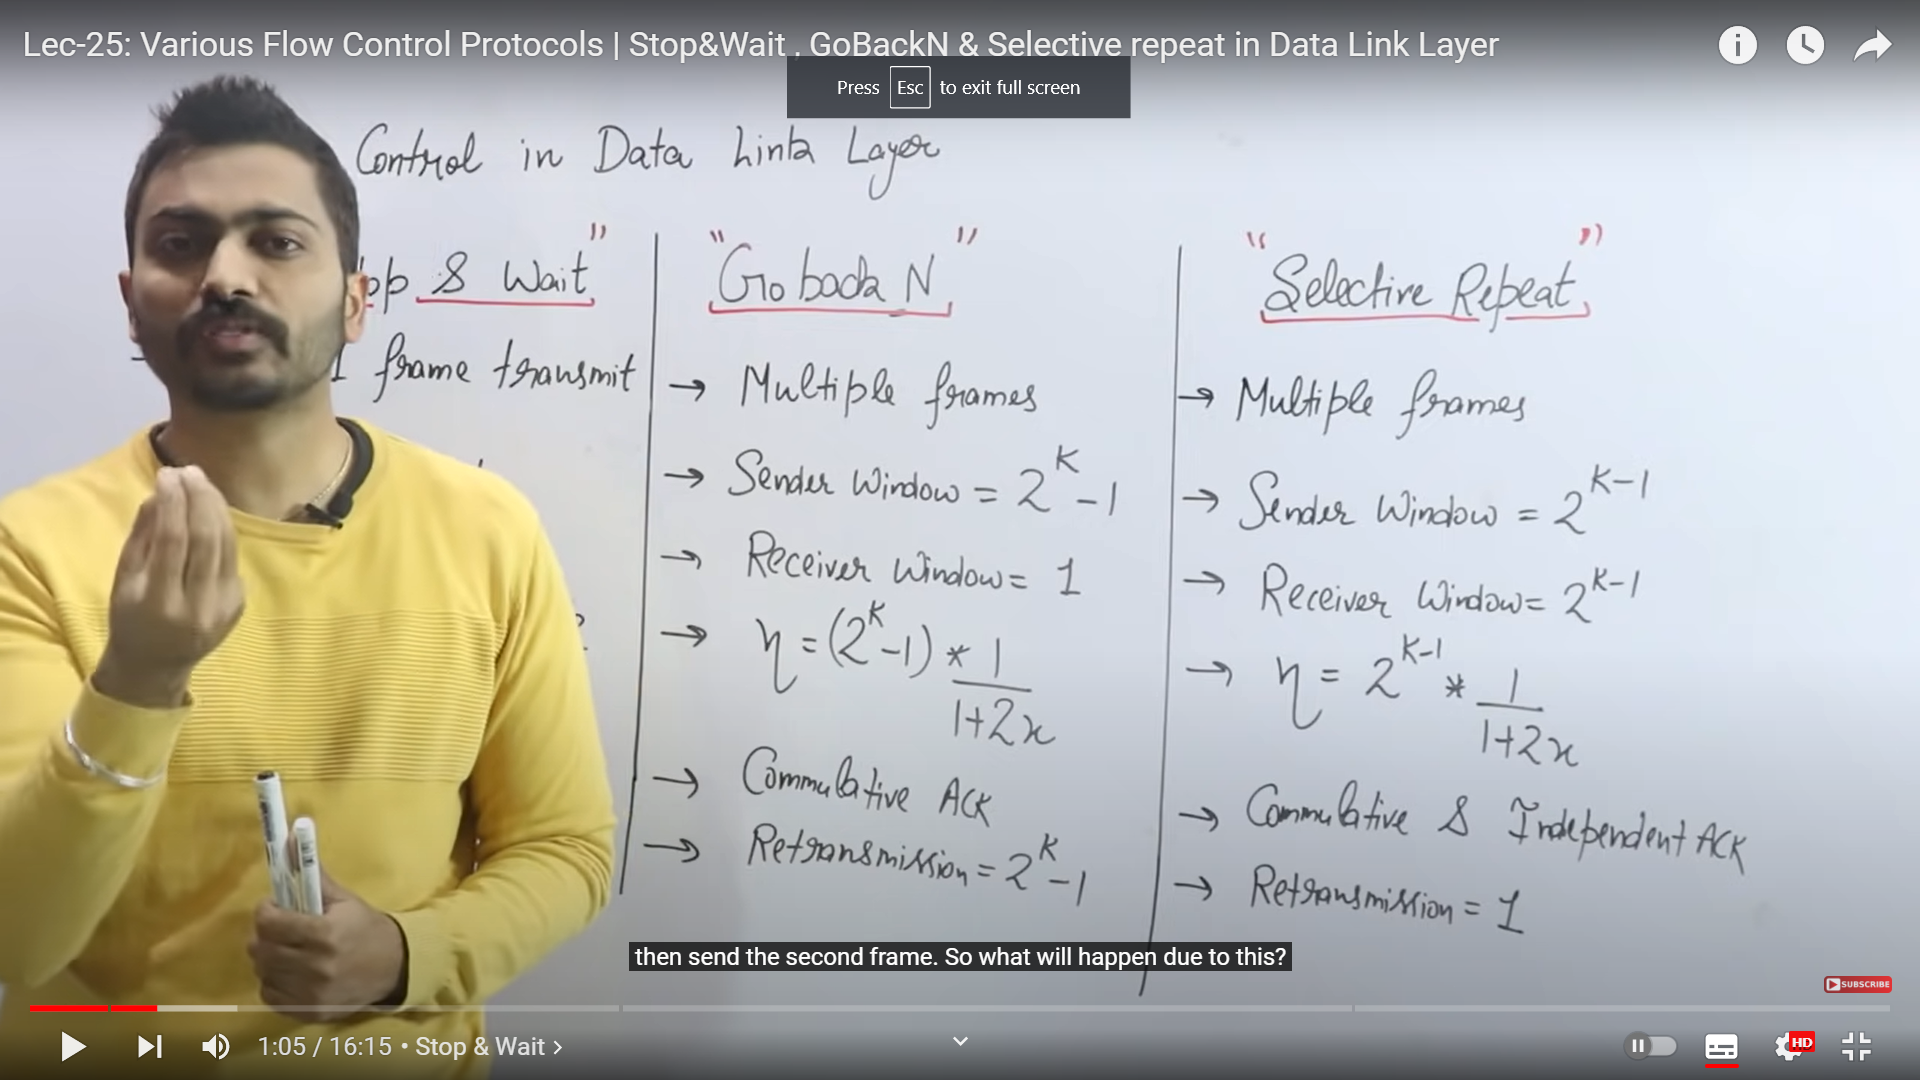 Lec-25: Various Flow Control Protocols | Stop&Wait , GoBackN & Selective repeat in Data Link Layer
Press Esc to exit full screen
Control in Data Link Layer
& Wait"
1 frame transmit
"Go back N"
→ Multiple frames
→ Sender Window = 2^K - 1
→ Receiver Window = 1
→ η = (2^K - 1) * 1/(1+2x)
→ Commulative ACK
→ Retransmission = 2^K - 1
"Selective Repeat"
→ Multiple frames
→ Sender Window = 2^(K-1)
→ Receiver Window = 2^(K-1)
→ η = 2^(K-1) * 1/(1+2x)
→ Commulative & Independent ACK
→ Retransmission = 1
then send the second frame. So what will happen due to this?
SUBSCRIBE
1:05 / 16:15 • Stop & Wait >
HD